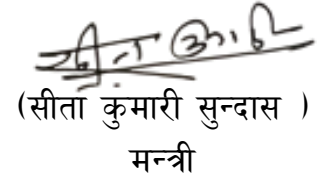 (सीता कुमारी सुन्दास )
मन्त्री